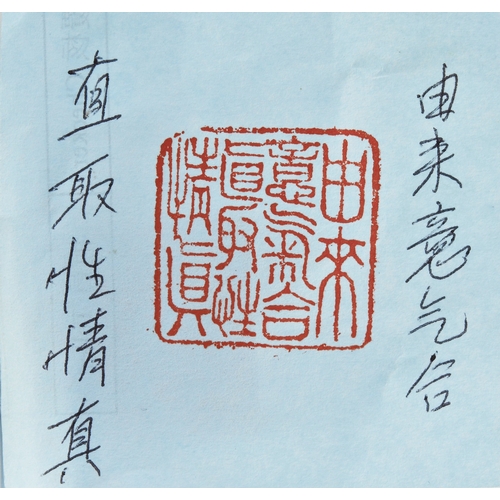 由来意气合
由来
意氣合
直取性
情真
直取性情真